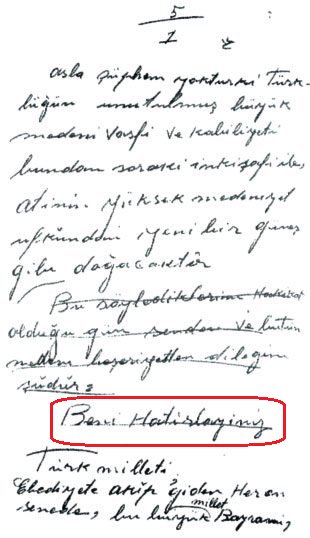 5
1
asla şüphem yokturki Türk-
lüğün unutulmuş büyük
medeni vasfi ve kabiliyeti
bundan sonraki inkişafi ile,
atinin yüksek medeniyet
ufkundan yeni bir güneş
gibi doğacaktır
Bu söylediklerim Hakikat
olduğu gün senden ve bütün
medeni beşeriyetten dileğim
şudur:
Beni Hatırlayınız
Türk milleti
Ebediyete akıp giden Her on
millet
senede, bu büyük Bayramı,